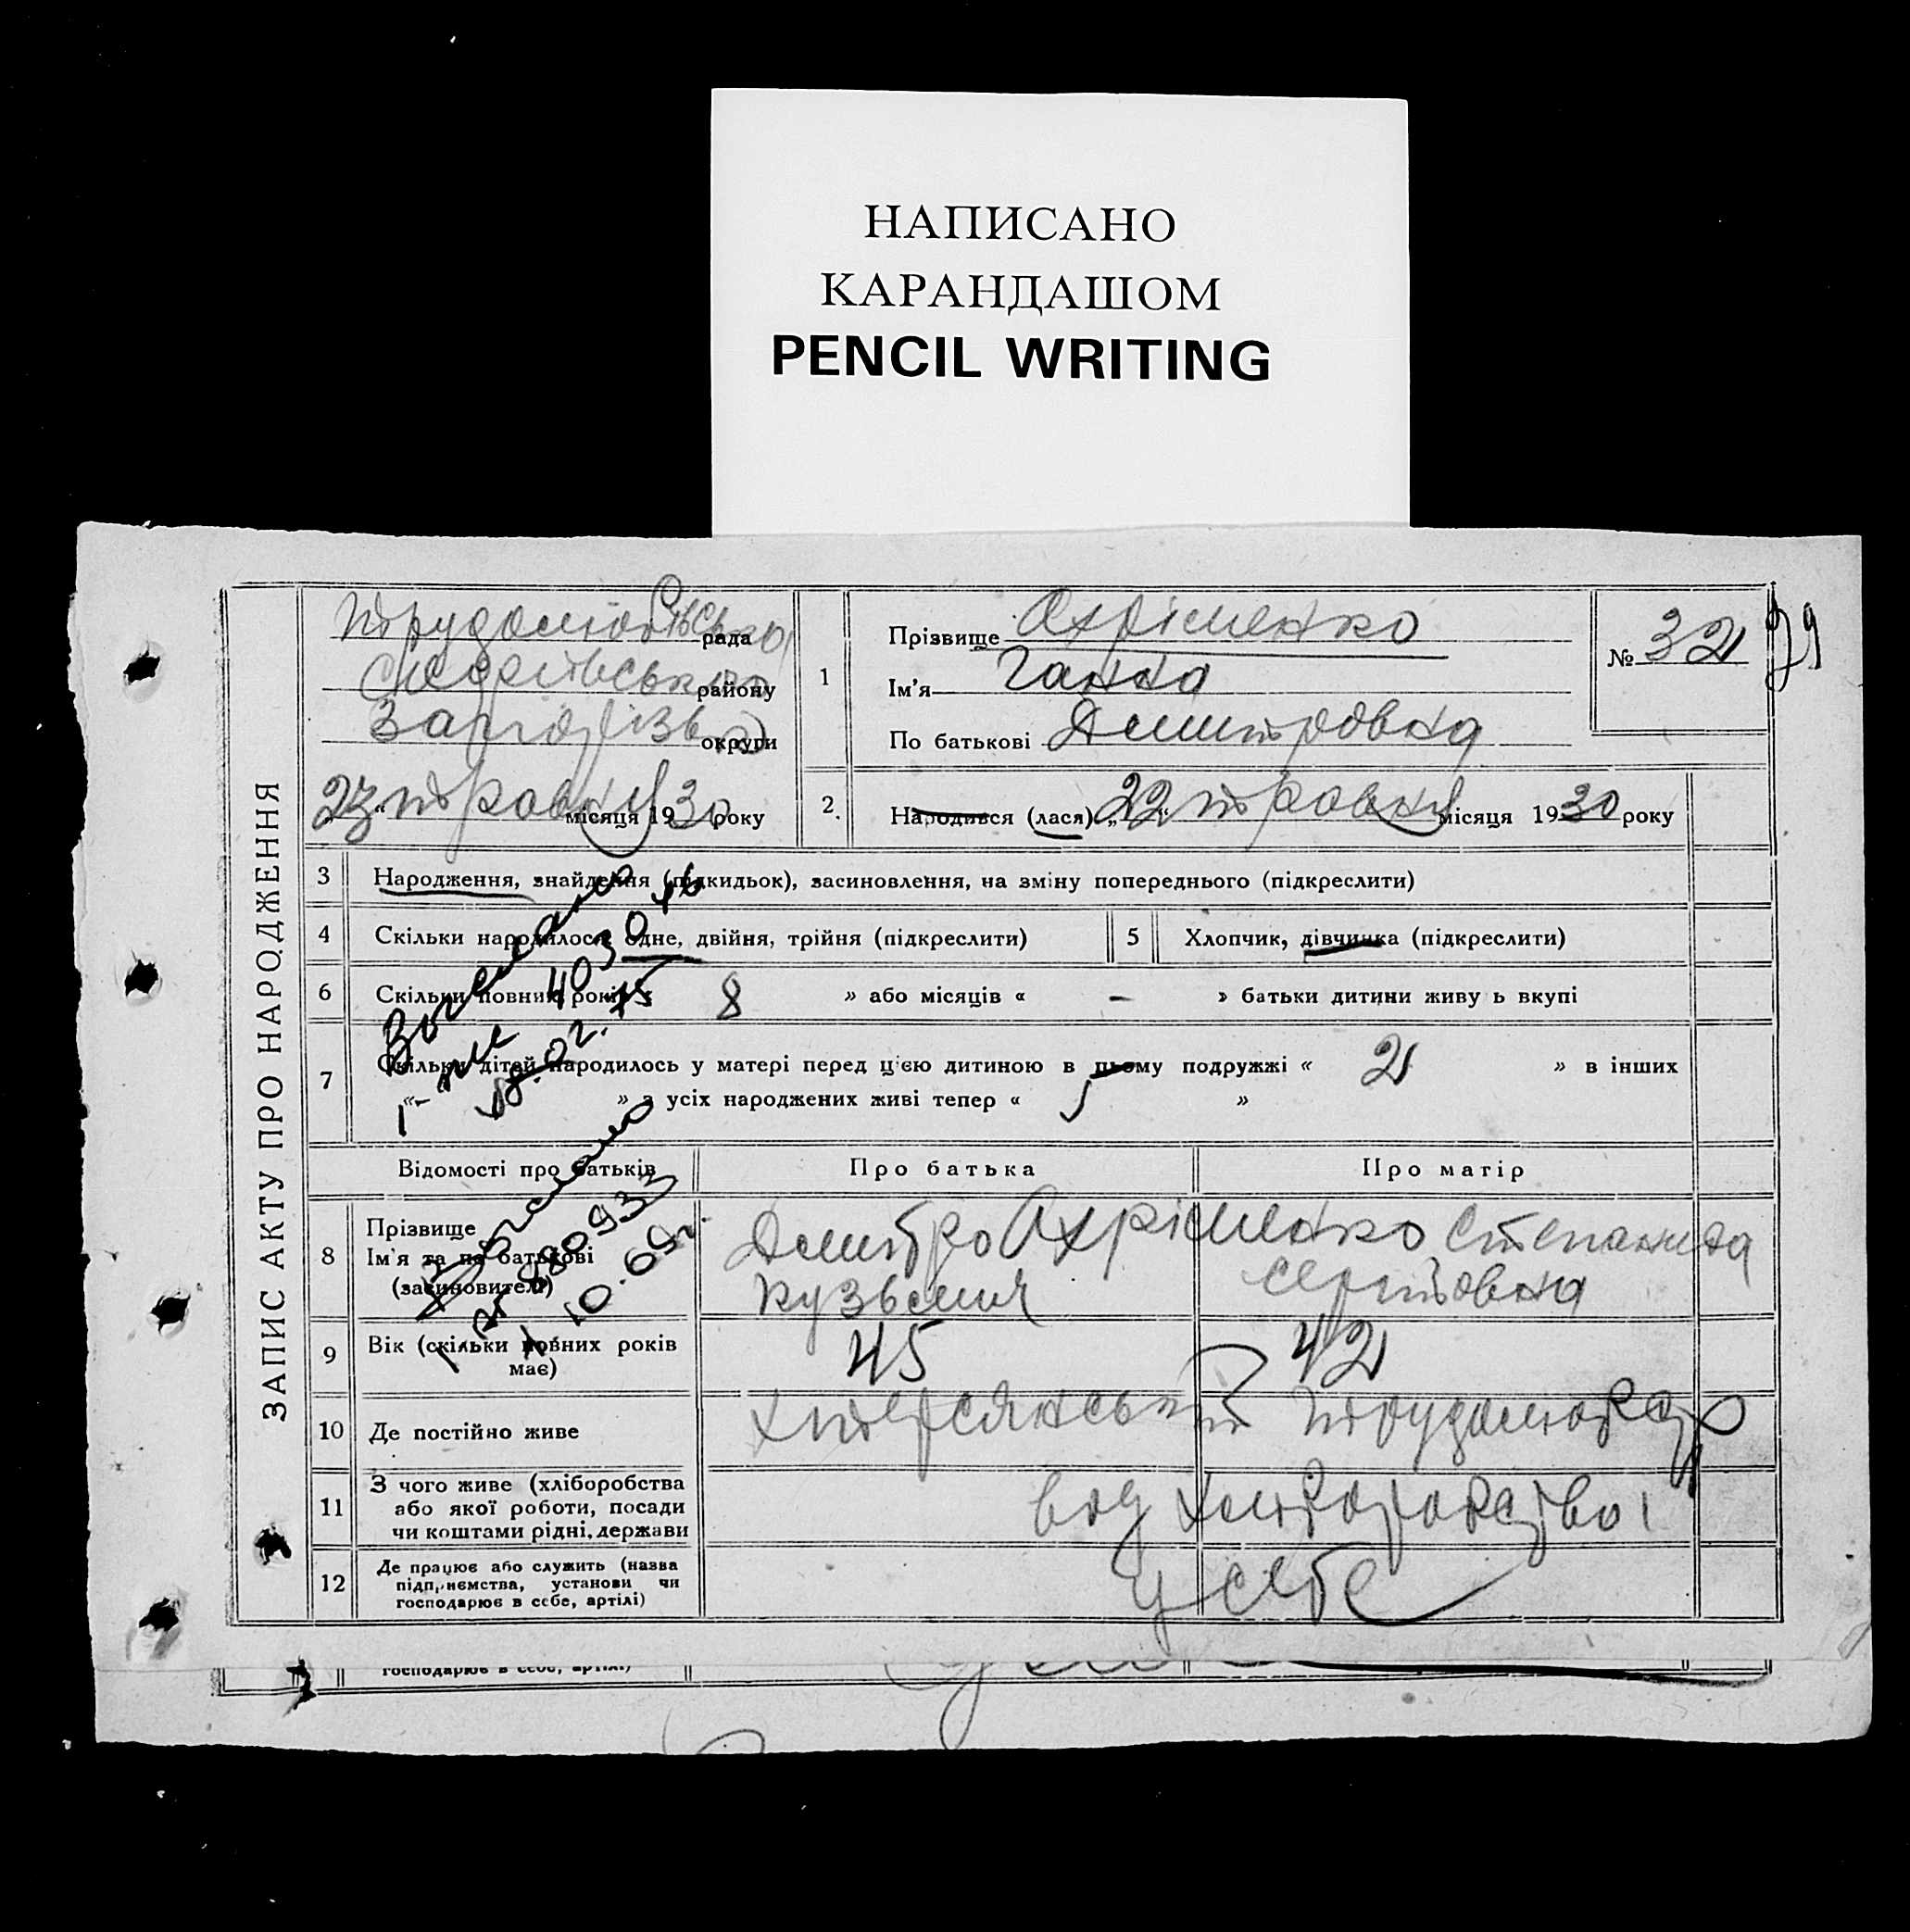 НАПИСАНО
КАРАНДАШОМ
PENCIL WRITING
ЗАПИС АКТУ ПРО НАРОДЖЕННЯ
рада
району
округи
23 травня місяця 1930 року
1
Прізвище Ахріменко
Ім'я Ганна
По батькові Дмитровна
№ 32
29
2. Народився (лася) „22“ травня місяця 1930 року
3 Народження, знайдення (підкидьок), засиновлення, на зміну попереднього (підкреслити)
4 Скільки народилося: одне, двійня, трійня (підкреслити)
5 Хлопчик, дівчинка (підкреслити)
6 Скільки повних років « 8 » або місяців « – » батьки дитини живу ь вкупі
7 Скільки дітей народилось у матері перед цією дитиною в цьому подружжі « 2 » в інших
«- » з усіх народжених живі тепер « »
Відомості про батьків
Про батька
Про матір
8 Прізвище
Ім'я та по батькові
(засиновителі)
Дмитро Ахріменко
Кузьмич
Степанида
Сергіовна
9 Вік (скільки повних років
має)
45
42
10 Де постійно живе
11 З чого живе (хліборобства
або якої роботи, посади
чи коштами рідні, держави
12 Де працює або служить (назва
підприємства, установи чи
господарює в себе, артілі)
у себе
господарює в себе, артілі)